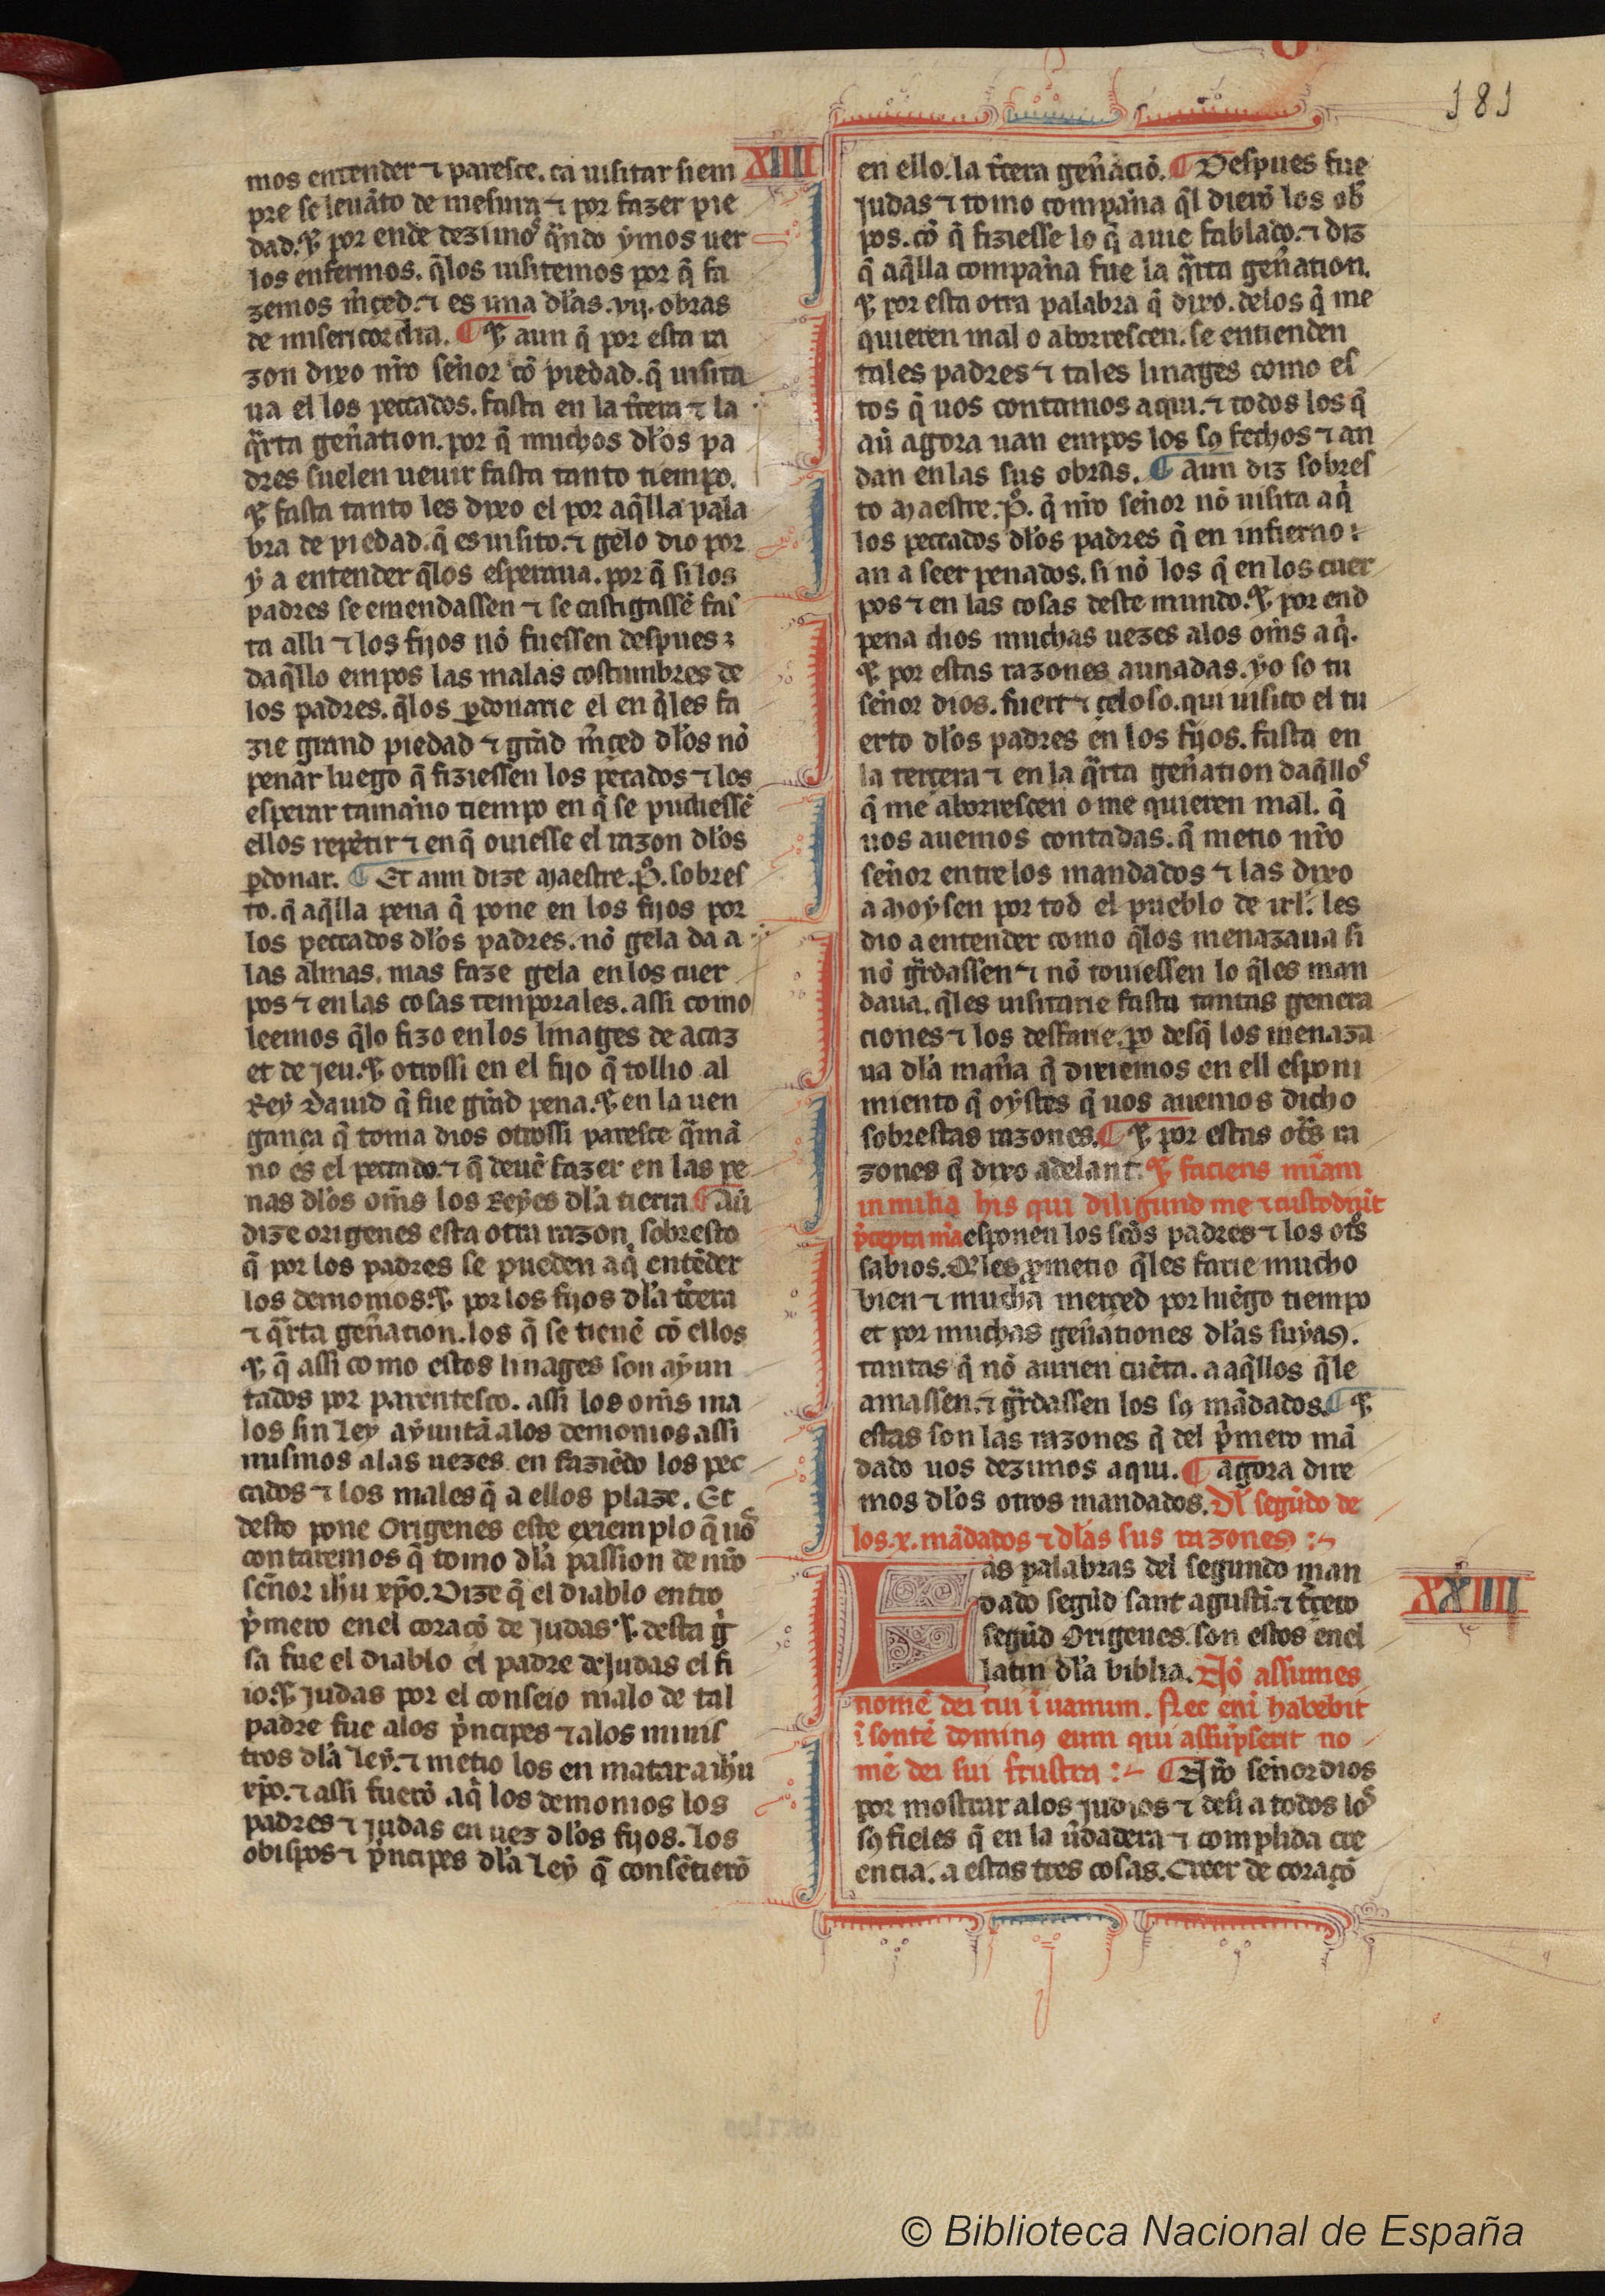 181
XIIII
mos entender ⁊ paresce. ca uisitar siem
pre se leuãto de mesura ⁊ por fazer pie
dad. ⁊ por ende dezimos q̃ndo ymos uer
los enfermos. q̃los uisitemos por q̃ fa
zemos m̃çed. ⁊ es una dl'as .vij. obras
de misericordia. ¶ ⁊ aun q̃ por esta ra
zon dixo nr̃o sen̄or cõ piedad. q̃ uisita
ua el los peccados. fasta en la t̃cera ⁊ la
q̃rta gen̄ation. por q̃ muchos dl'os pa
dres suelen ueuir fasta tanto tiempo.
⁊ fasta tanto les dixo el por aq̃lla pala
bra de piedad. q̃ es uisito. ⁊ gelo dio por
ẏ a entender q̃los esperaua. por q̃ si los
padres se emendassen ⁊ se castigassẽ fas
ta alli ⁊ los fijos nõ fuessen despues
daq̃llo empos las malas costumbres de
los padres. q̃los ꝑdonarie el en q̃les fa
zie grand piedad ⁊ grãd m̃çed dl'os nõ
penar luego q̃ fiziessen los pecados ⁊ los
esperar tamanno tiempo en q̃ se pudiessẽ
ellos repẽtir ⁊ en q̃ ouiesse el razon dl'os
ꝑdonar. ¶ Et aun dize maestre .P̊. sobres
to. q̃ aq̃lla pena q̃ pone en los fijos por
los peccados dl'os padres. nõ gela da a
las almas. mas faze gela en los cuer
pos ⁊ en las cosas temporales. assi como
leemos q̃lo fizo en los linages de acaz
et de jeu. ⁊ otrossi en el fijo q̃ tollio al
Rey Dauid q̃ fue grãd pena. ⁊ en la uen
gança q̃ toma dios otrossi paresce q̃mã
no es el peccado. ⁊ q̃ deuẽ fazer en las pe
nas dl'os om̃s los Reyes dl'a tierra. ¶ aũ
dize origenes esta otra razon sobresto
q̃ por los padres se pueden aq̃ entẽder
los demonios. ⁊ por los fijos dl'a t̃cera
⁊ q̃rta gen̄ation. los q̃ se tienẽ cõ ellos
⁊ q̃ assi como estos linages son aẏun
tados por parentesco. assi los om̃s ma
los sin ley aẏuntã alos demonios assi
mismos alas uezes en faziẽdo los pec
cados ⁊ los males q̃ a ellos plaze. Et
desto pone Origenes este exiemplo q̃ uos
contaremos q̃ tomo dl'a passion de nr̃o
sen̄or ihũ xp̃o. Dize q̃ el diablo entro
p̃mero enel coraçõ de Judas. ⁊ desta g̃
sa fue el diablo el padre de Judas el fi
io. ⁊ Judas por el conseio malo de tal
padre fue alos p̃ncipes ⁊ alos minis
tros dl'a ley. ⁊ metio los en matar a ihũ
xp̃o. ⁊ assi fuerõ aq̃ los demonios los
padres ⁊ judas en uez dl'os fijos. los
obispos ⁊ p̃ncipes dl'a ley q̃ consẽtierõ
en ello. la t̃cera gen̄aciõ. ¶ Despues fue
judas ⁊ tomo companna q̃l dierõ los ob̃
pos. cõ q̃ fiziesse lo q̃ auie fablado. ⁊ diz
q̃ aq̃lla companna fue la q̃rta gen̄ation.
⁊ por esta otra palabra q̃ dixo. delos q̃ me
quieren mal o aborrescen. se entienden
tales padres ⁊ tales linages como es
tos q̃ uos contamos aqui. ⁊ todos los q̃
aũ agora uan empos los sꝯ fechos ⁊ an
dan en las sus obras. ¶ aun diz sobres
to maestre .P̊. q̃ nr̃o sen̄or nõ uisita aq̃
los peccados dl'os padres q̃ en infierno
an a seer penados. si nõ los q̃ en los cuer
pos ⁊ en las cosas deste mundo. ⁊ por end
pena dios muchas uezes alos om̃s aq̃.
⁊ por estas razones aunadas. yo so tu
sen̄or dios. fuert ⁊ çeloso. qui uisito el tu
erto dl'os padres en los fijos. fasta en
la terçera ⁊ en la q̃rta gen̄ation daq̃llos
q̃ me aborrescen o me quieren mal. q̃
uos auemos contadas. q̃ metio nr̃o
sen̄or entre los mandados ⁊ las dixo
a moysen por tod el pueblo de irl'. les
dio a entender como q̃los menazaua si
nõ g̃rdassen ⁊ nõ touiessen lo q̃les man
daua. q̃les uisitarie fasta tantas genera
ciones ⁊ los desfarie. ꝑo desq̃ los menaza
ua dl'a man̄a q̃ dixiemos en ell esponi
miento q̃ oẏstes q̃ uos auemos dicho
sobrestas razones. ¶ ⁊ por estas ot̃s ra
zones q̃ dixo adelant. ⁊ faciens mĩam
in milia his qui diligund me ⁊ custodiũt
p̃cepta m̃a esponen los sc̃os padres ⁊ los ot̃s
sabios. Q̃les ꝓmetio q̃les farie mucho
bien ⁊ mucha merçed por luẽgo tiempo
et por muchas gen̄ationes dl'as suẏas.
tantas q̃ nõ aurien cuẽta. a aq̃llos q̃le
amassen. ⁊ g̃rdassen los sꝯ mãdados. ¶ ⁊
estas son las razones q̃ del p̃mero mã
dado uos dezimos aqui. ¶ agora dire
mos dl'os otros mandados. Dl' segũdo de
los .x. mãdados ⁊ dl'as sus razones :~
Las palabras del segundo man
dado segũd sant agustĩ. ⁊ t̃cero
segũd Origenes. son estos enel
latin dl'a biblia. Nõ assumes
nomẽ dei tui ĩ uanum. Nec enĩ habebit
ĩsontẽ dominꝯ eum qui assũpserit no
mẽ dei sui frustra :~ ¶ Nr̃o sen̄or dios
por mostrar alos judios ⁊ desi a todos los
sꝯ fieles q̃ en la ũdadera ⁊ complida cre
encia. a estas tres cosas. Creer de coraçõ
XXIIII
© Biblioteca Nacional de España